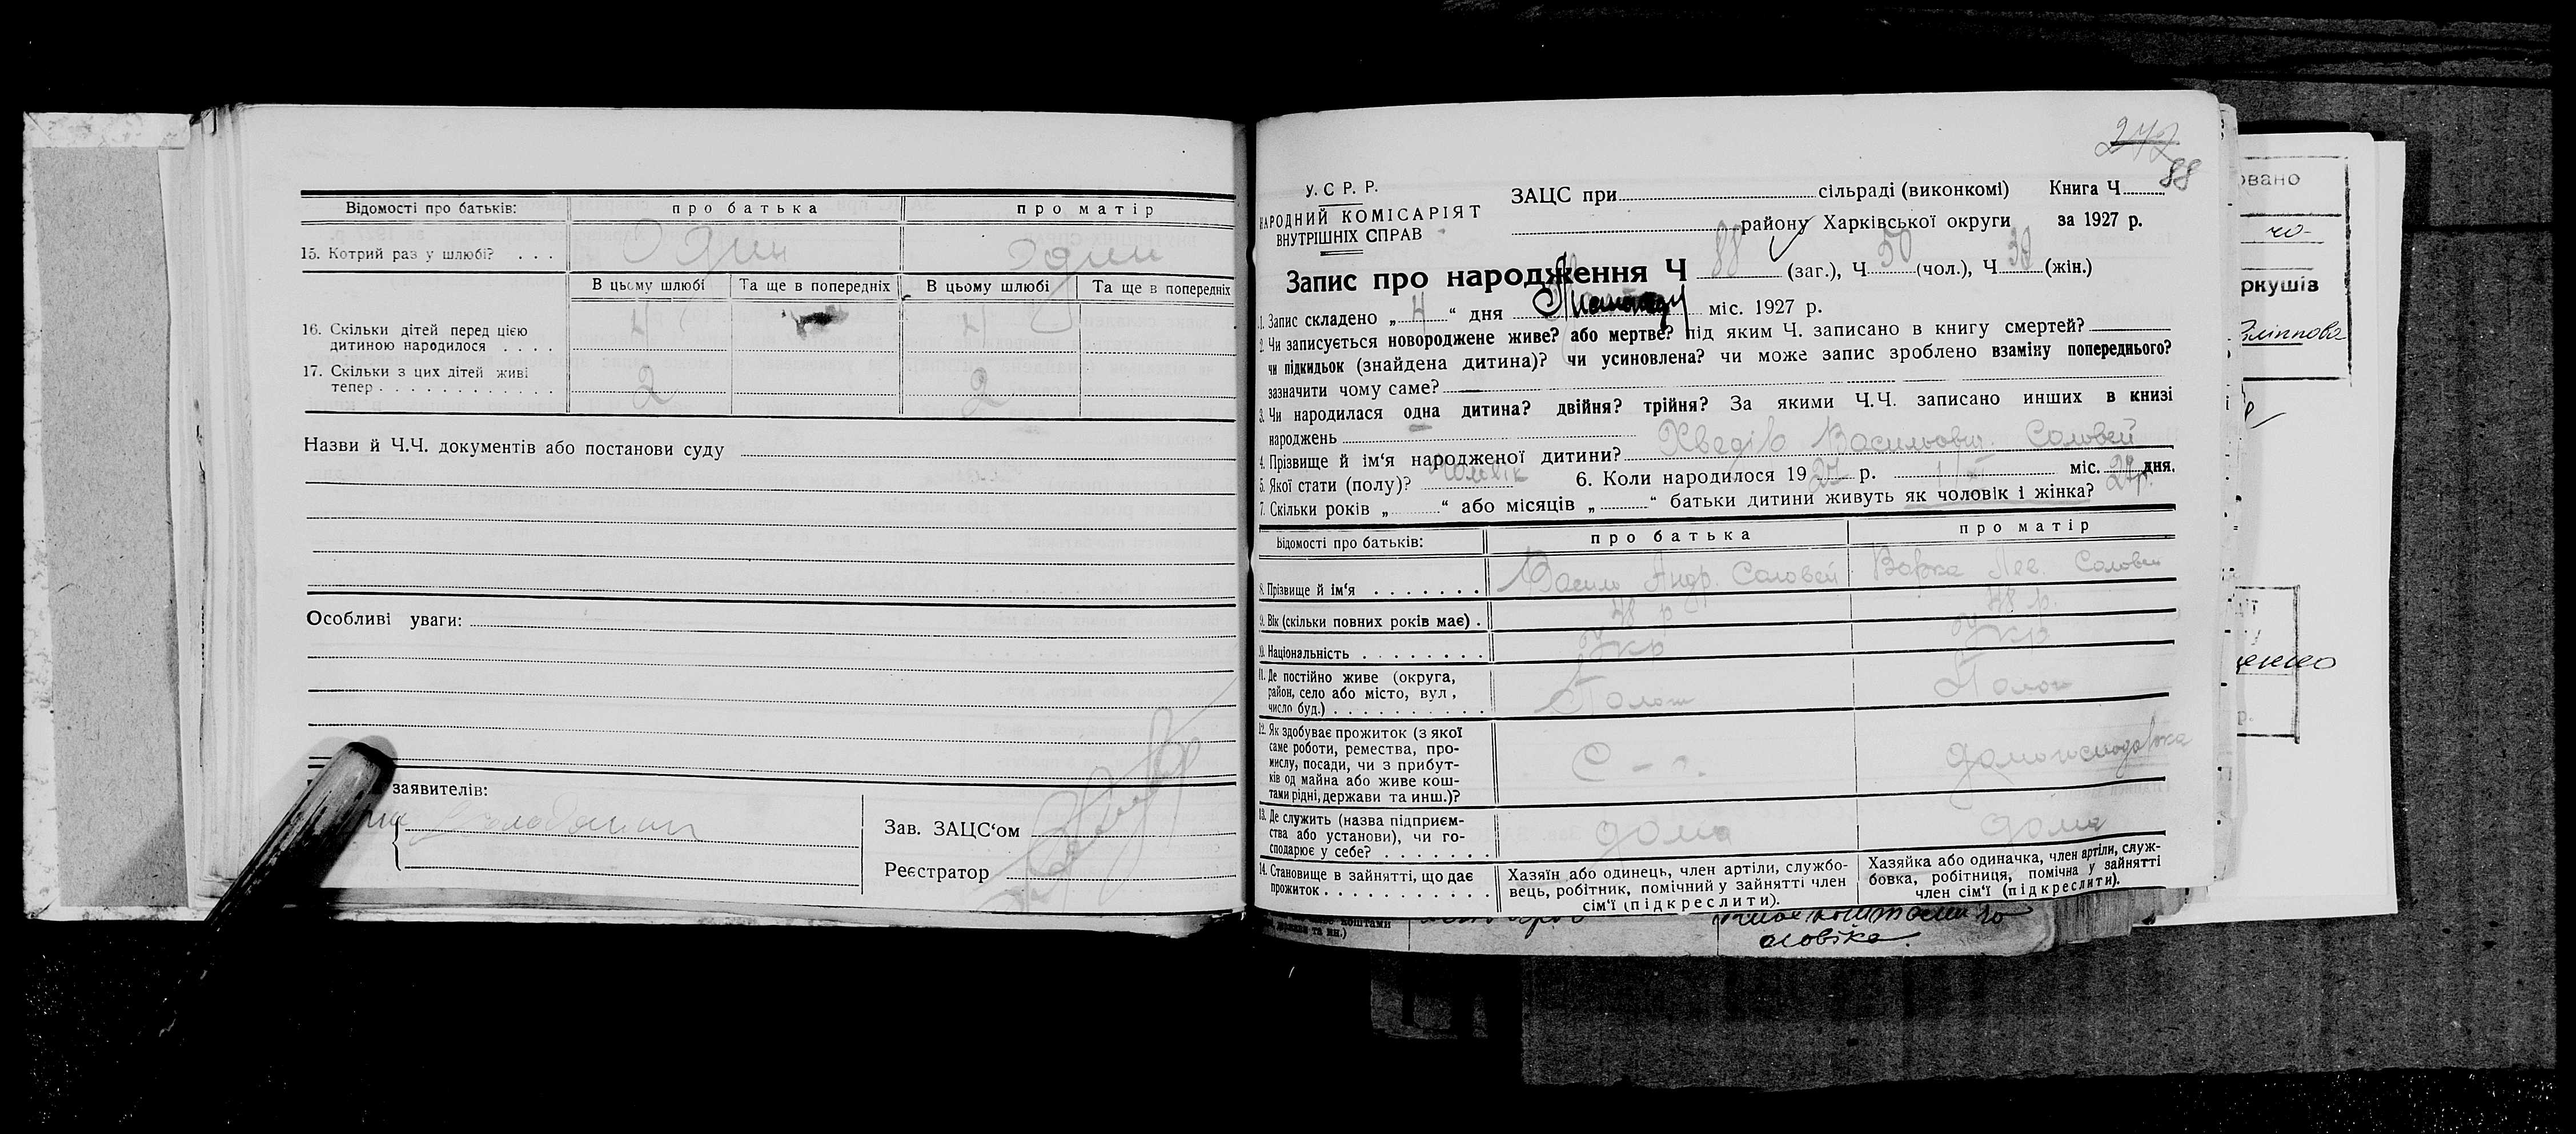 Відомості про батьків: про батька про матір
15. Котрий раз у шлюбі? . . . Один Один
В цьому шлюбі Та ще в попередніх В цьому шлюбі Та ще в попередніх
16. Скільки дітей перед цією
дитиною народилося . . . . 4 4
17. Скільки з цих дітей живі
тепер . . . . . . . . . . . . 2 2
Назви й Ч.Ч. документів або постанови суду
Особливі уваги:
заявителів:
Зав. ЗАЦС‘ом
Реєстратор
242
88
У. С Р. Р.
НАРОДНИЙ КОМІСАРІЯТ
ВНУТРІШНІХ СПРАВ
ЗАЦС при сільраді (виконкомі) Книга Ч
району Харківської округи за 1927 р.
Запис про народження Ч 88 (заг.), Ч 50 (чол.), Ч 39 (жін.)
1. Запис складено „ 4 “ дня міс. 1927 р.
2. Чи записується новороджене живе? або мертве? під яким Ч. записано в книгу смертей?
чи підкидьок (знайдена дитина)? чи усиновлена? чи може запис зроблено взаміну попереднього?
зазначити чому саме?
3. Чи народилася одна дитина? двійня? трійня? За якими Ч.Ч. записано инших в книзі
народжень
4. Прізвище й ім‘я народженої дитини? Хведір Васильович Соловей
5. Якої стати (полу)? чоловік 6. Коли народилося 19 27 р. міс. дня.
7. Скільки років „ “ або місяців „ “ батьки дитини живуть як чоловік і жінка?
Відомості про батьків: про батька про матір
8. Прізвище й ім‘я . . . . . . . Василь Андр. Соловей Варка Соловей
9. Вік (скільки повних років має) . 48 р 48 р.
10. Національність . . . . . . . . Укр Укр
11. Де постійно живе (округа,
район, село або місто, вул,
число буд.) . . . . . . . . . .
12. Як здобуває прожиток (з якої
саме роботи, ремества, про-
мислу, посади, чи з прибут-
ків од майна або живе кош-
тами рідні, держави та инш.)? С - г. домогосподарка
13. Де служить (назва підприєм-
ства або установи), чи го-
сподарює у себе? . . . . . . . дома дома
14. Становище в зайнятті, що дає
прожиток . . . . . . . . . .
Хазяїн або одинець, член артіли, службо-
вець, робітник, помічний у зайнятті член
сім‘ї (підкреслити).
Хазяйка або одиначка, член артіли, служ-
бовка, робітниця, помічна у зайнятті
член сім‘ї (підкреслити).
коштами
держави та ин.)